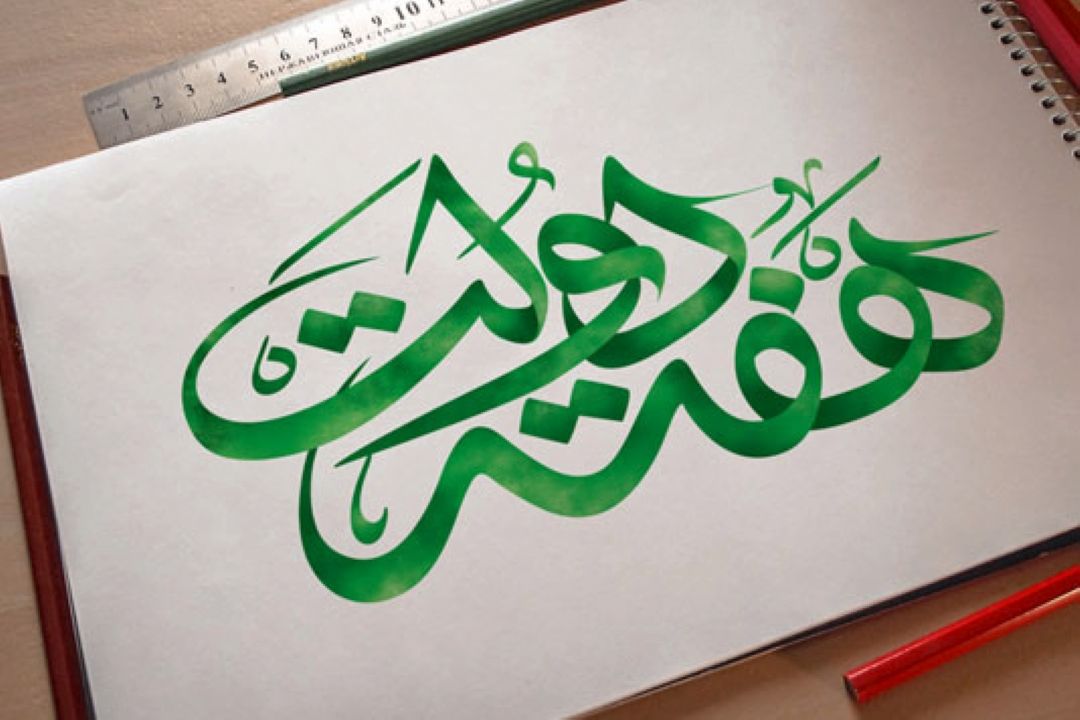 1 2 3 4 5 6 7 8 9 10
НЕРЖАВЕЮЩАЯ СТАЛЬ
هفته دولت